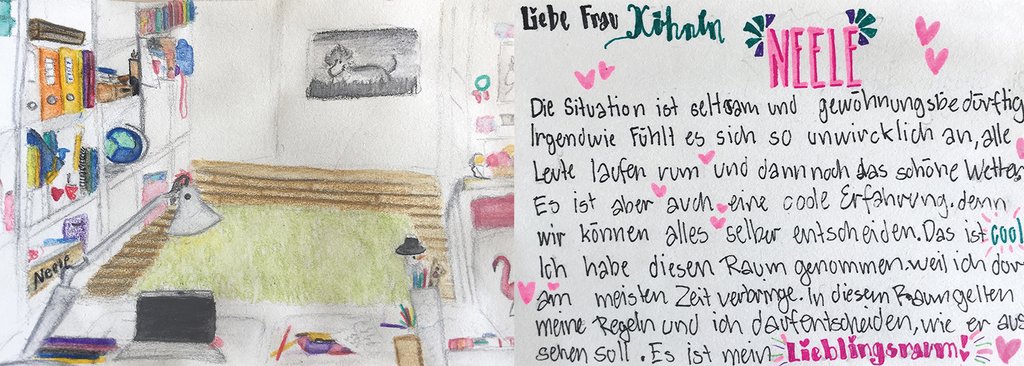 Neele
Liebe Frau Köhneln
NEELE
Die Situation ist seltsam und gewöhnungsbedürftig
Irgendwie Fühlt es sich so unwircklich an, alle
Leute laufen rum und dann noch das schöne Wetter.
Es ist aber auch eine coole Erfahrung. denn
wir können alles selber entscheiden. Das ist cool
Ich habe diesen Raum genommen. weil ich dor
am meisten Zeit verbringe. In diesem Raum gelten
meine Regeln und ich darf entscheiden, wie er aus
sehen soll. Es ist mein Lieblingsraum!